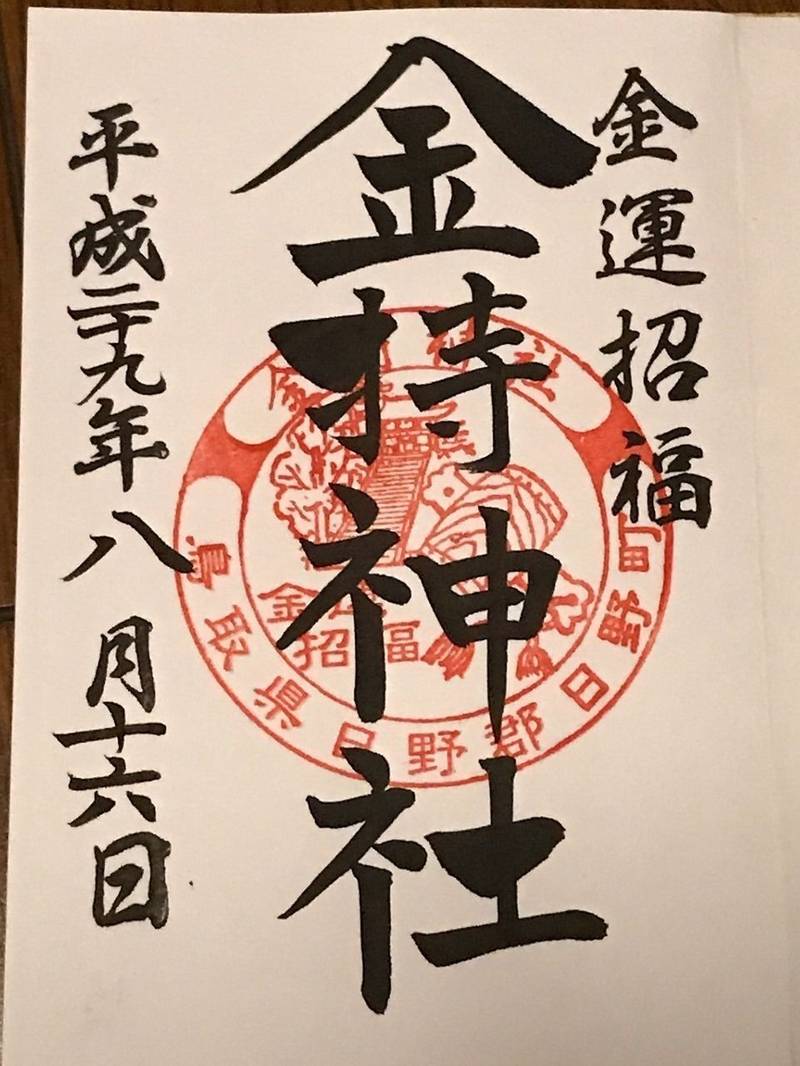 金運招福
金持神社
平成二十九年八月十六日
金持神社
鳥取県日野郡日野町
金運
招福